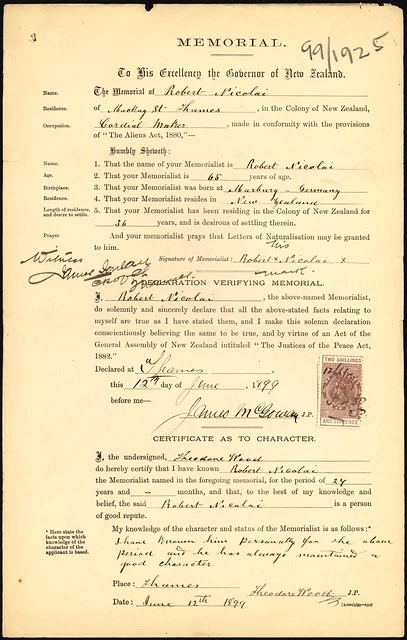 MEMORIAL.
99/1925
To His Excellency the Governor of New Zealand.
Name. The Memorial of Robert Nicolai
Residence. of Mackay St Thames, in the Colony of New Zealand,
Occupation. Cordial Maker, made in conformity with the provisions
of "The Aliens Act, 1880,"—
Humbly Sheweth:
Name. 1. That the name of your Memorialist is Robert Nicolai
Age. 2. That your Memorialist is 65 years of age.
Birthplace. 3. That your Memorialist was born at Marburg - Germany
Residence. 4. That your Memorialist resides in New Zealand
Length of residence, and desire to settle. 5. That your Memorialist has been residing in the Colony of New Zealand for
36 years, and is desirous of settling therein.
Prayer. And your memorialist prays that Letters of Naturalisation may be granted
to him.
his
Signature of Memorialist: Robert x Nicolai x
mark.
Witness
James
DECLARATION VERIFYING MEMORIAL.
I, Robert Nicolai, the above-named Memorialist,
do solemnly and sincerely declare that all the above-stated facts relating to
myself are true as I have stated them, and I make this solemn declaration
conscientiously believing the same to be true, and by virtue of an Act of the
General Assembly of New Zealand intituled "The Justices of the Peace Act,
1882."
Declared at Thames
this 12th day of June, 1899
before me—
James McGowan J.P.
TWO SHILLINGS
AND SIXPENCE
CERTIFICATE AS TO CHARACTER.
I, the undersigned, Theodore Wood
do hereby certify that I have known Robert Nicolai
the Memorialist named in the foregoing memorial, for the period of 24
years and - months, and that, to the best of my knowledge and
belief, the said Robert Nicolai is a person
of good repute.
* Here state the facts upon which knowledge of the character of the applicant is based.
My knowledge of the character and status of the Memorialist is as follows:*
I have known him personally for the above
period and he has always maintained a
good character
Place: Thames
Theodore Wood J.P.
Date: June 12th 1899